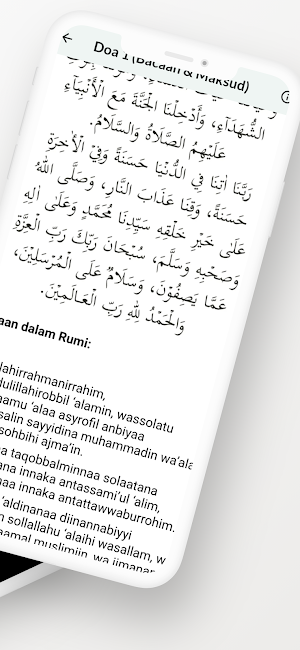 Doa 1 (Bacaan & Maksud)
الشُّهَدَآءِ، وَأَدْخِلْنَا الْجَنَّةَ مَعَ الْأَنْبِيَآءِ
عَلَيْهِمُ الصَّلَاةُ وَالسَّلَامُ.
رَبَّنَا اٰتِنَا فِي الدُّنْيَا حَسَنَةً وَفِيْ الْاٰخِرَةِ
حَسَنَةً، وَقِنَا عَذَابَ النَّارِ، وَصَلَّى اللهُ
عَلَىٰ خَيْرِ خَلْقِهِ سَيِّدِنَا مُحَمَّدٍ وَعَلَىٰ اٰلِهِ
وَصَحْبِهِ وَسَلَّمَ، سُبْحَانَ رَبِّكَ رَبِّ الْعِزَّةِ
عَمَّا يَصِفُوْنَ، وَسَلَامٌ عَلَى الْمُرْسَلِيْنَ،
وَالْحَمْدُ لِلّٰهِ رَبِّ الْعَالَمِيْنَ.
aan dalam Rumi:
lahirrahmanirrahim,
dulillahirobbil ‘alamin, wassolatu
amu ‘alaa asyrofil anbiyaa
salin sayyidina muhammadin wa’ala
sohbihi ajma’in.
a taqobbalminnaa solaatana
ana innaka antassami’ul ‘alim,
naa innaka antattawwaburrohim.
‘aldinanaa diinannabiyyi
n sollallahu ‘alaihi wasallam, w
aamal muslimiin, wa iimanan